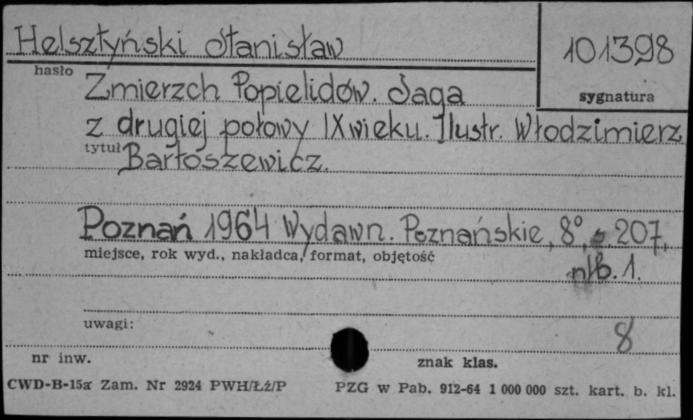 Helsztyński Stanisław
101398
hasło
sygnatura
Zmierzch Popielidów. Saga
z drugiej połowy IX wieku. Ilustr. Włodzimierz
tytuł
Bartoszewicz.
Poznań 1964 Wydawn. Poznańskie, 8°, s. 207,
miejsce, rok wyd., nakładca, format, objętość
nlb. 1.
uwagi:
8
nr inw.
znak klas.
CWD-B-15a Zam. Nr 2924 PWH/Łź/P
PZG w Pab. 912-64 1 000 000 szt. kart. b. kl.